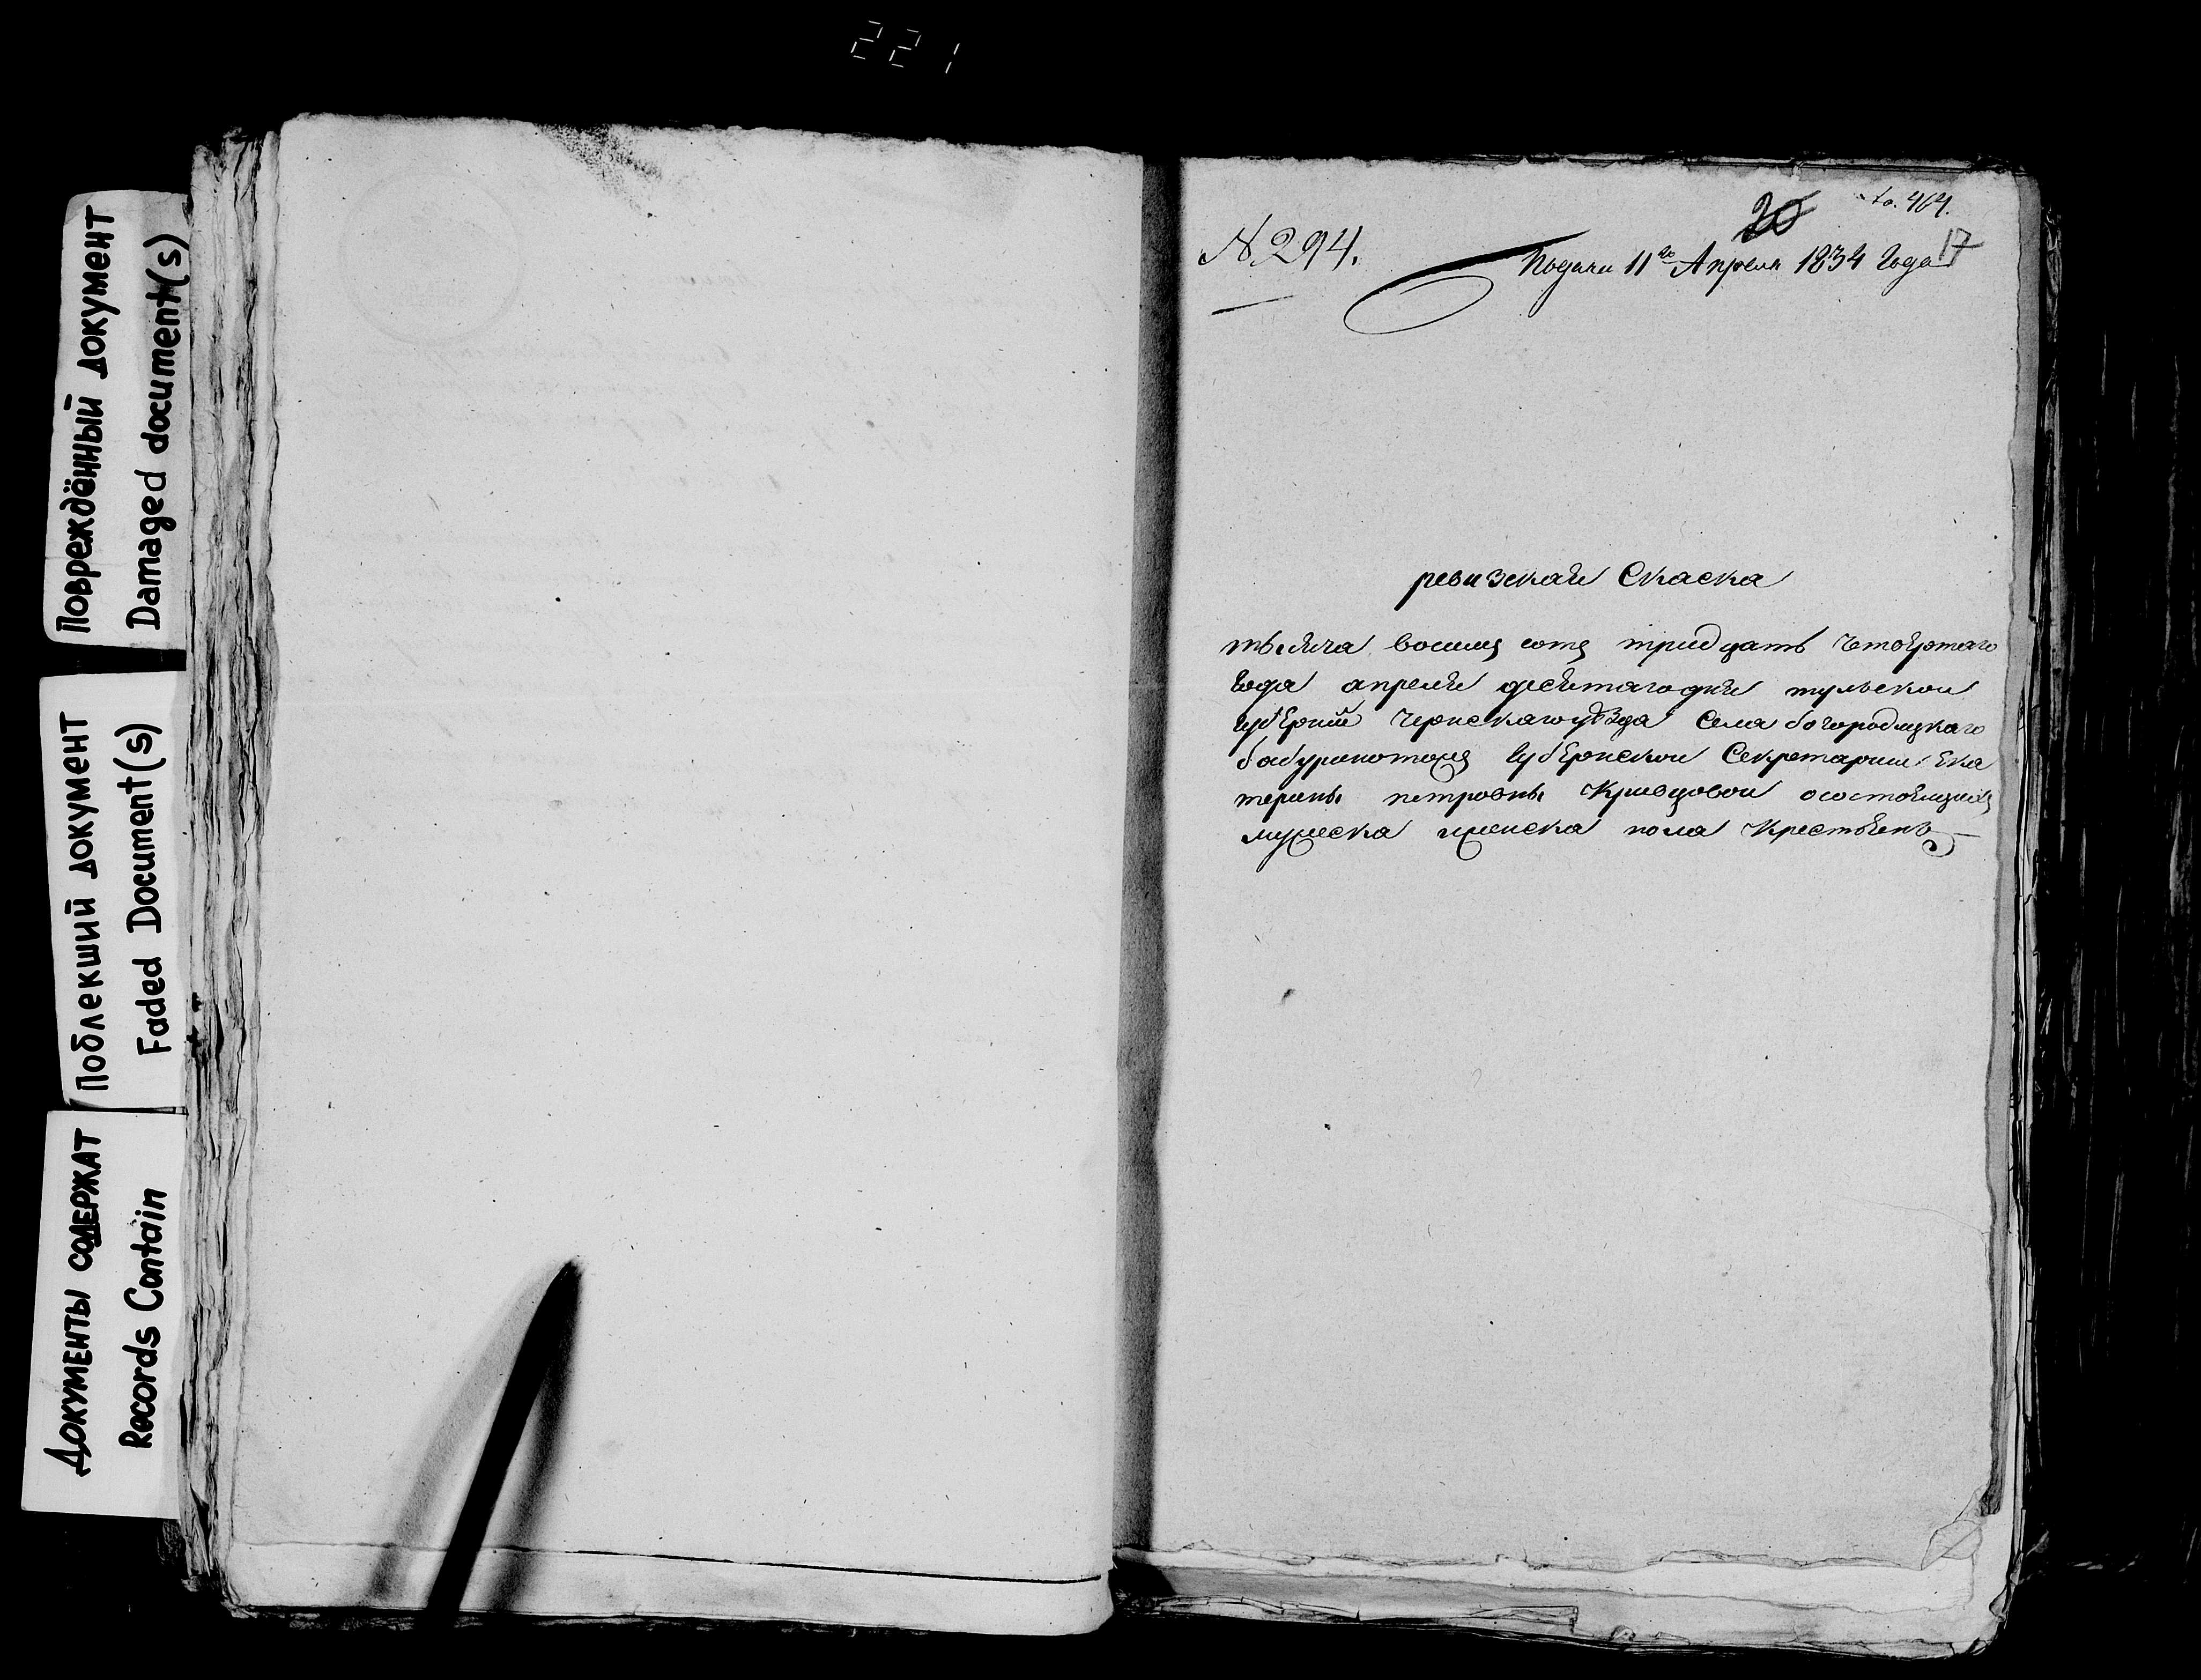 221
Повреждённый документ
Damaged document(s)
Поблекший документ
Faded Document(s)
Документы содержат
Records Contain
20
464.
17
N 294.
Подана 11го Апреля 1834 Года
ревизская Скаска
тысяча восимъ сотъ тридцать Четвертаго
Года апреля десятаго дня тульской
губерний Чернскаго уѣзда Села богородицкаго
бабурино тожъ Губернской Секретарши Ека
терины петровны Кривцовой осостоящихъ
мужеска иженска пола Крестьянъ